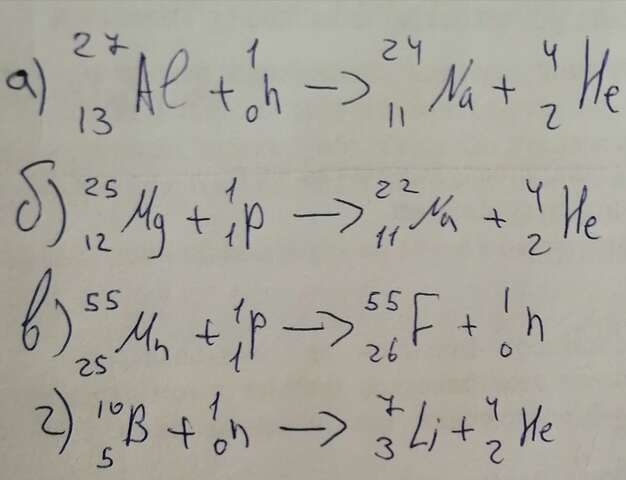 а) ²⁷₁₃Al + ¹₀n → ²⁴₁₁Na + ⁴₂He
б) ²⁵₁₂Mg + ¹₁p → ²²₁₁Na + ⁴₂He
в) ⁵⁵₂₅Mn + ¹₁p → ⁵⁵₂₆F + ¹₀n
г) ¹⁰₅B + ¹₀n → ⁷₃Li + ⁴₂He